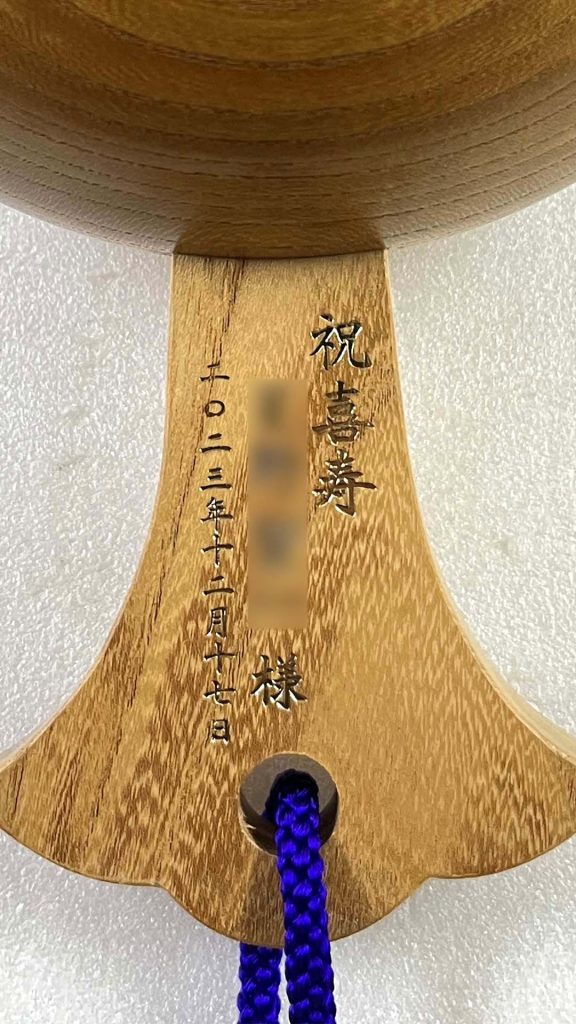 祝喜寿
様
二〇二三年十二月十七日